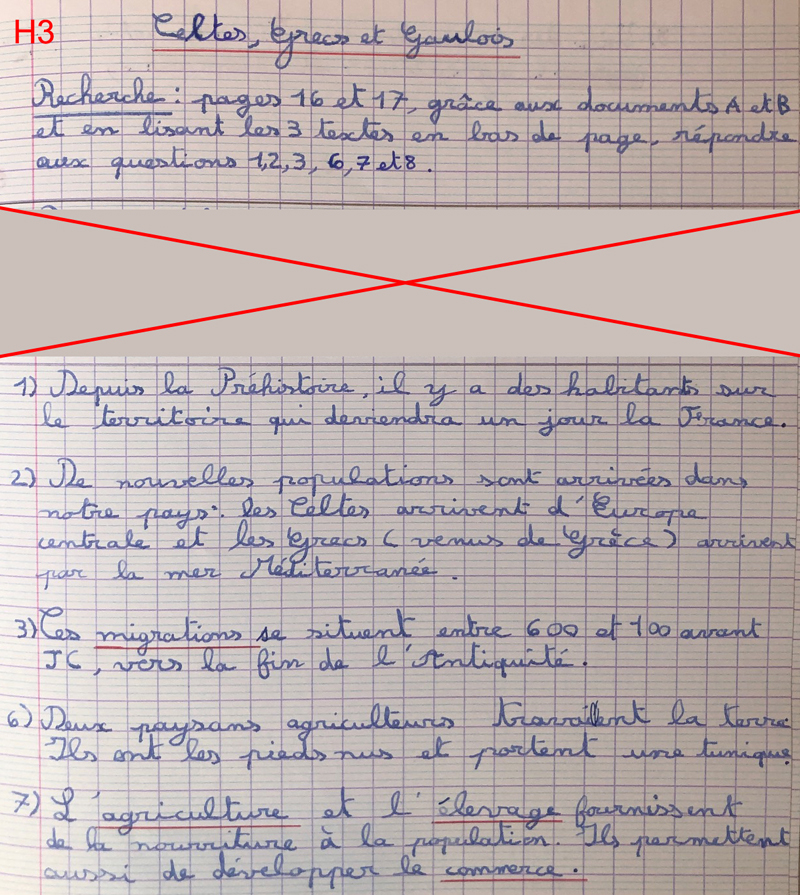 H3
Celtes, Grecs et Gaulois
Recherche : pages 16 et 17, grâce aux documents A et B
et en lisant les 3 textes en bas de page, répondre
aux questions 1,2,3, 6,7 et 8.
1) Depuis la Préhistoire, il y a des habitants sur
le territoire qui deviendra un jour la France.
2) De nouvelles populations sont arrivées dans
notre pays : les Celtes arrivent d'Europe
centrale et les Grecs ( venus de Grâce ) arrivent
par la mer Méditerranée.
3) Ces migrations se situent entre 600 et 100 avant
JC, vers la fin de l'Antiquité.
6) Deux paysans agriculteurs travaillent la terre.
Ils ont les pieds nus et portent une tunique.
7) L'agriculture et l'élevage fournissent
de la nourriture à la population. Ils permettent
aussi de développer le commerce.